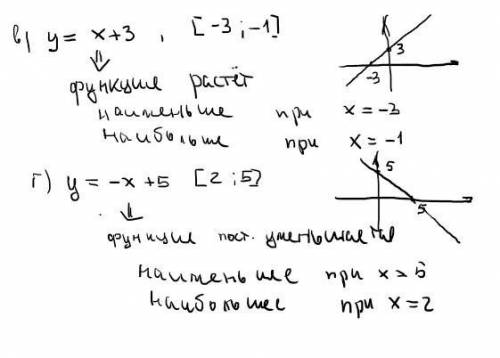 в) y = x+3 , [-3 ; -1]
функция растёт
наименьше при x = -3
наибольше при x = -1
3
-3
г) y = -x +5 [2 ; 5]
функция пост. уменьшается
наименьшее при x = 5
наибольшее при x = 2
5
5